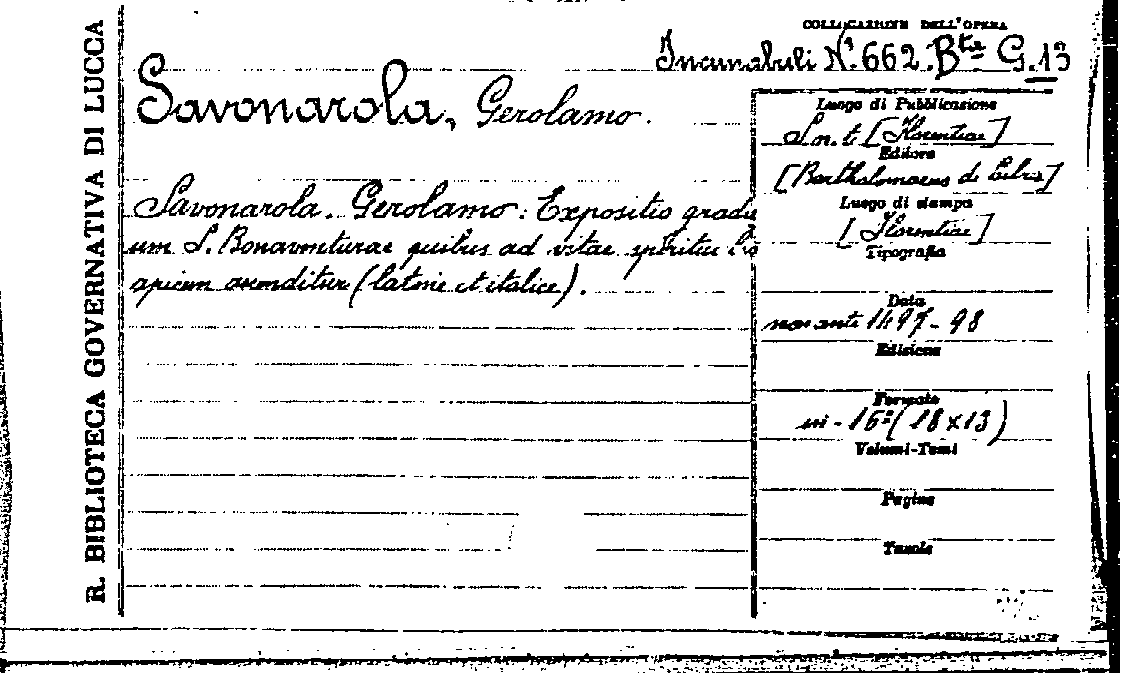 R. BIBLIOTECA GOVERNATIVA DI LUCCA
COLLOCAZIONE DELL'OPERA
Incunabuli N.° 662. Bta G.13
Savonarola, Gerolamo.
Savonarola. Gerolamo: Expositio gradu
um S. Bonaventurae quibus ad vitae spiritus
apicem ascenditur (latine et italice).
Luogo di Pubblicazione
[Florentiae]
Editore
[Bartholomaeus de Libris]
Luogo di stampa
[Florentiae]
Tipografia
Data
non ante 1497-98
Edizione
Formato
in-16°(18x13)
Volumi-Tomi
Pagine
Tavole